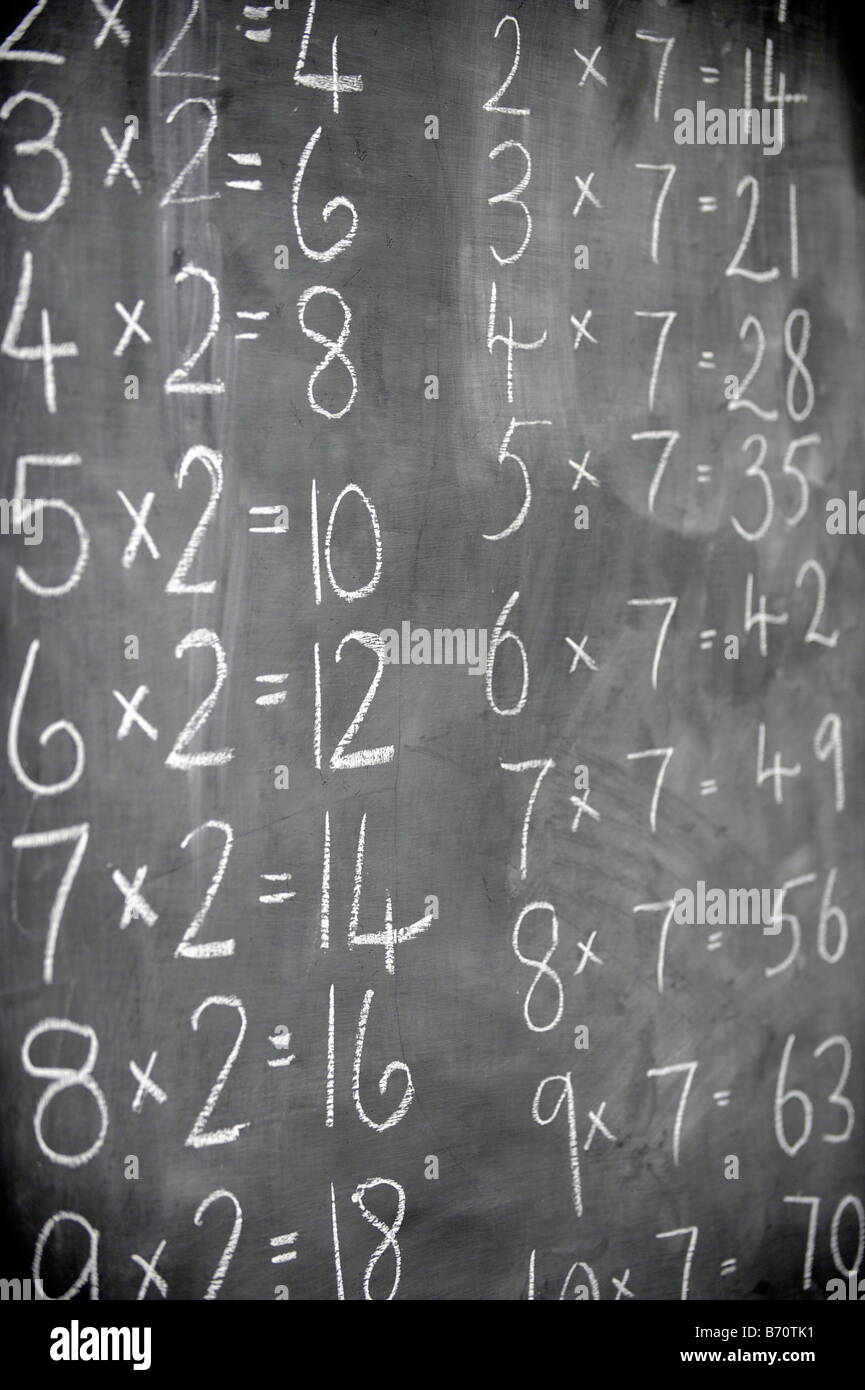 2 × 2 = 4
3 × 2 = 6
4 × 2 = 8
5 × 2 = 10
6 × 2 = 12
7 × 2 = 14
8 × 2 = 16
9 × 2 = 18
2 × 7 = 14
3 × 7 = 21
4 × 7 = 28
5 × 7 = 35
6 × 7 = 42
7 × 7 = 49
8 × 7 = 56
9 × 7 = 63
10 × 7 = 70
alamy
alamy
Image ID: B70TK1
www.alamy.com